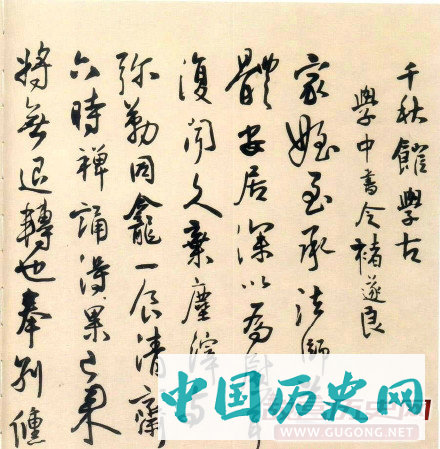 千秋館學古
學中書令褚遂良
家姪至承法師
體安居深以為
復聞久棄塵滓
弥勒同龕一食清齋
六時禪誦得果已来
將無退轉也奉別儵
中国历史网
WWW.GUGONG.NET